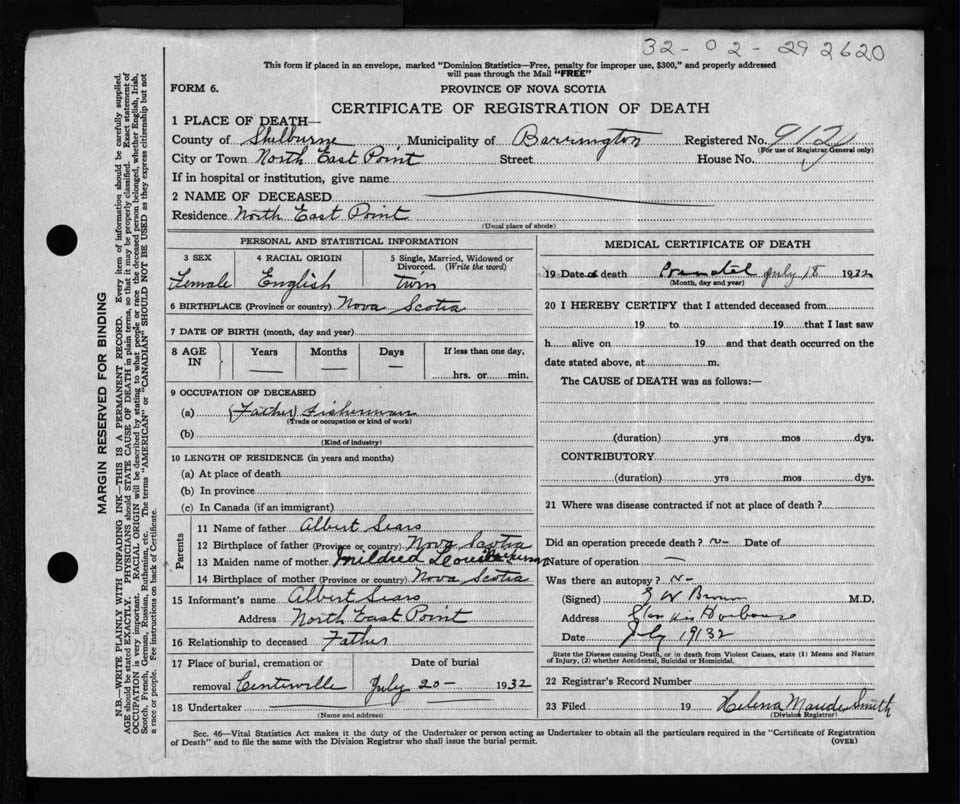 32-02-292620
This form if placed in an envelope, marked "Dominion Statistics—Free, penalty for improper use, $300," and properly addressed
will pass through the Mail "FREE"
FORM 6.
PROVINCE OF NOVA SCOTIA
CERTIFICATE OF REGISTRATION OF DEATH
1 PLACE OF DEATH—
County of Shelburne Municipality of Barrington Registered No.
(For use of Registrar General only)
City or Town North East Point Street House No.
If in hospital or institution, give name
2 NAME OF DECEASED
Residence North East Point
(Usual place of abode)
PERSONAL AND STATISTICAL INFORMATION
3 SEX 4 RACIAL ORIGIN 5 Single, Married, Widowed or
Divorced. (Write the word)
Female English Twin
6 BIRTHPLACE (Province or country) Nova Scotia
7 DATE OF BIRTH (month, day and year)
8 AGE IN Years Months Days If less than one day,
— — — hrs. or min.
9 OCCUPATION OF DECEASED
(a) (Father) Fisherman
(Trade or occupation or kind of work)
(b)
(Kind of industry)
10 LENGTH OF RESIDENCE (in years and months)
(a) At place of death
(b) In province
(c) In Canada (if an immigrant)
Parents
11 Name of father Albert Sears
12 Birthplace of father (Province or country) Nova Scotia
13 Maiden name of mother Mildred
14 Birthplace of mother (Province or country) Nova Scotia
15 Informant's name Albert Sears
Address North East Point
16 Relationship to deceased Father
17 Place of burial, cremation or Date of burial
removal Centerville July 20- 1932
18 Undertaker
(Name and address)
MEDICAL CERTIFICATE OF DEATH
19 Date of death July 18 1932
(Month, day and year)
20 I HEREBY CERTIFY that I attended deceased from
19 to 19 that I last saw
h alive on 19 and that death occurred on the
date stated above, at m.
The CAUSE of DEATH was as follows:—
(duration) yrs mos dys.
CONTRIBUTORY
(duration) yrs mos dys.
21 Where was disease contracted if not at place of death?
Did an operation precede death? Date of
Nature of operation —
Was there an autopsy?
(Signed) M.D.
Address Harbour
Date July 1932
State the Disease causing Death, or in death from Violent Causes, state (1) Means and Nature
of Injury, (2) whether Accidental, Suicidal or Homicidal.
22 Registrar's Record Number
23 Filed 19 Helena Maude Smith
(Division Registrar)
Sec. 46—Vital Statistics Act makes it the duty of the Undertaker or person acting as Undertaker to obtain all the particulars required in the "Certificate of Registration
of Death" and to file the same with the Division Registrar who shall issue the burial permit.
(OVER)
MARGIN RESERVED FOR BINDING
N.B.—WRITE PLAINLY WITH UNFADING INK—THIS IS A PERMANENT RECORD. Every item of information should be carefully supplied.
AGE should be stated EXACTLY. PHYSICIANS should STATE CAUSE OF DEATH in plain terms, so that it may be properly classified. Exact statement of
OCCUPATION is very important. RACIAL ORIGIN will be described by stating to what people or race the deceased person belonged, whether English, Irish,
Scotch, French, German, Russian, Ruthenian, etc. The terms "AMERICAN" or "CANADIAN" SHOULD NOT BE USED as they express citizenship but not
a race or people. See instructions on back of Certificate.